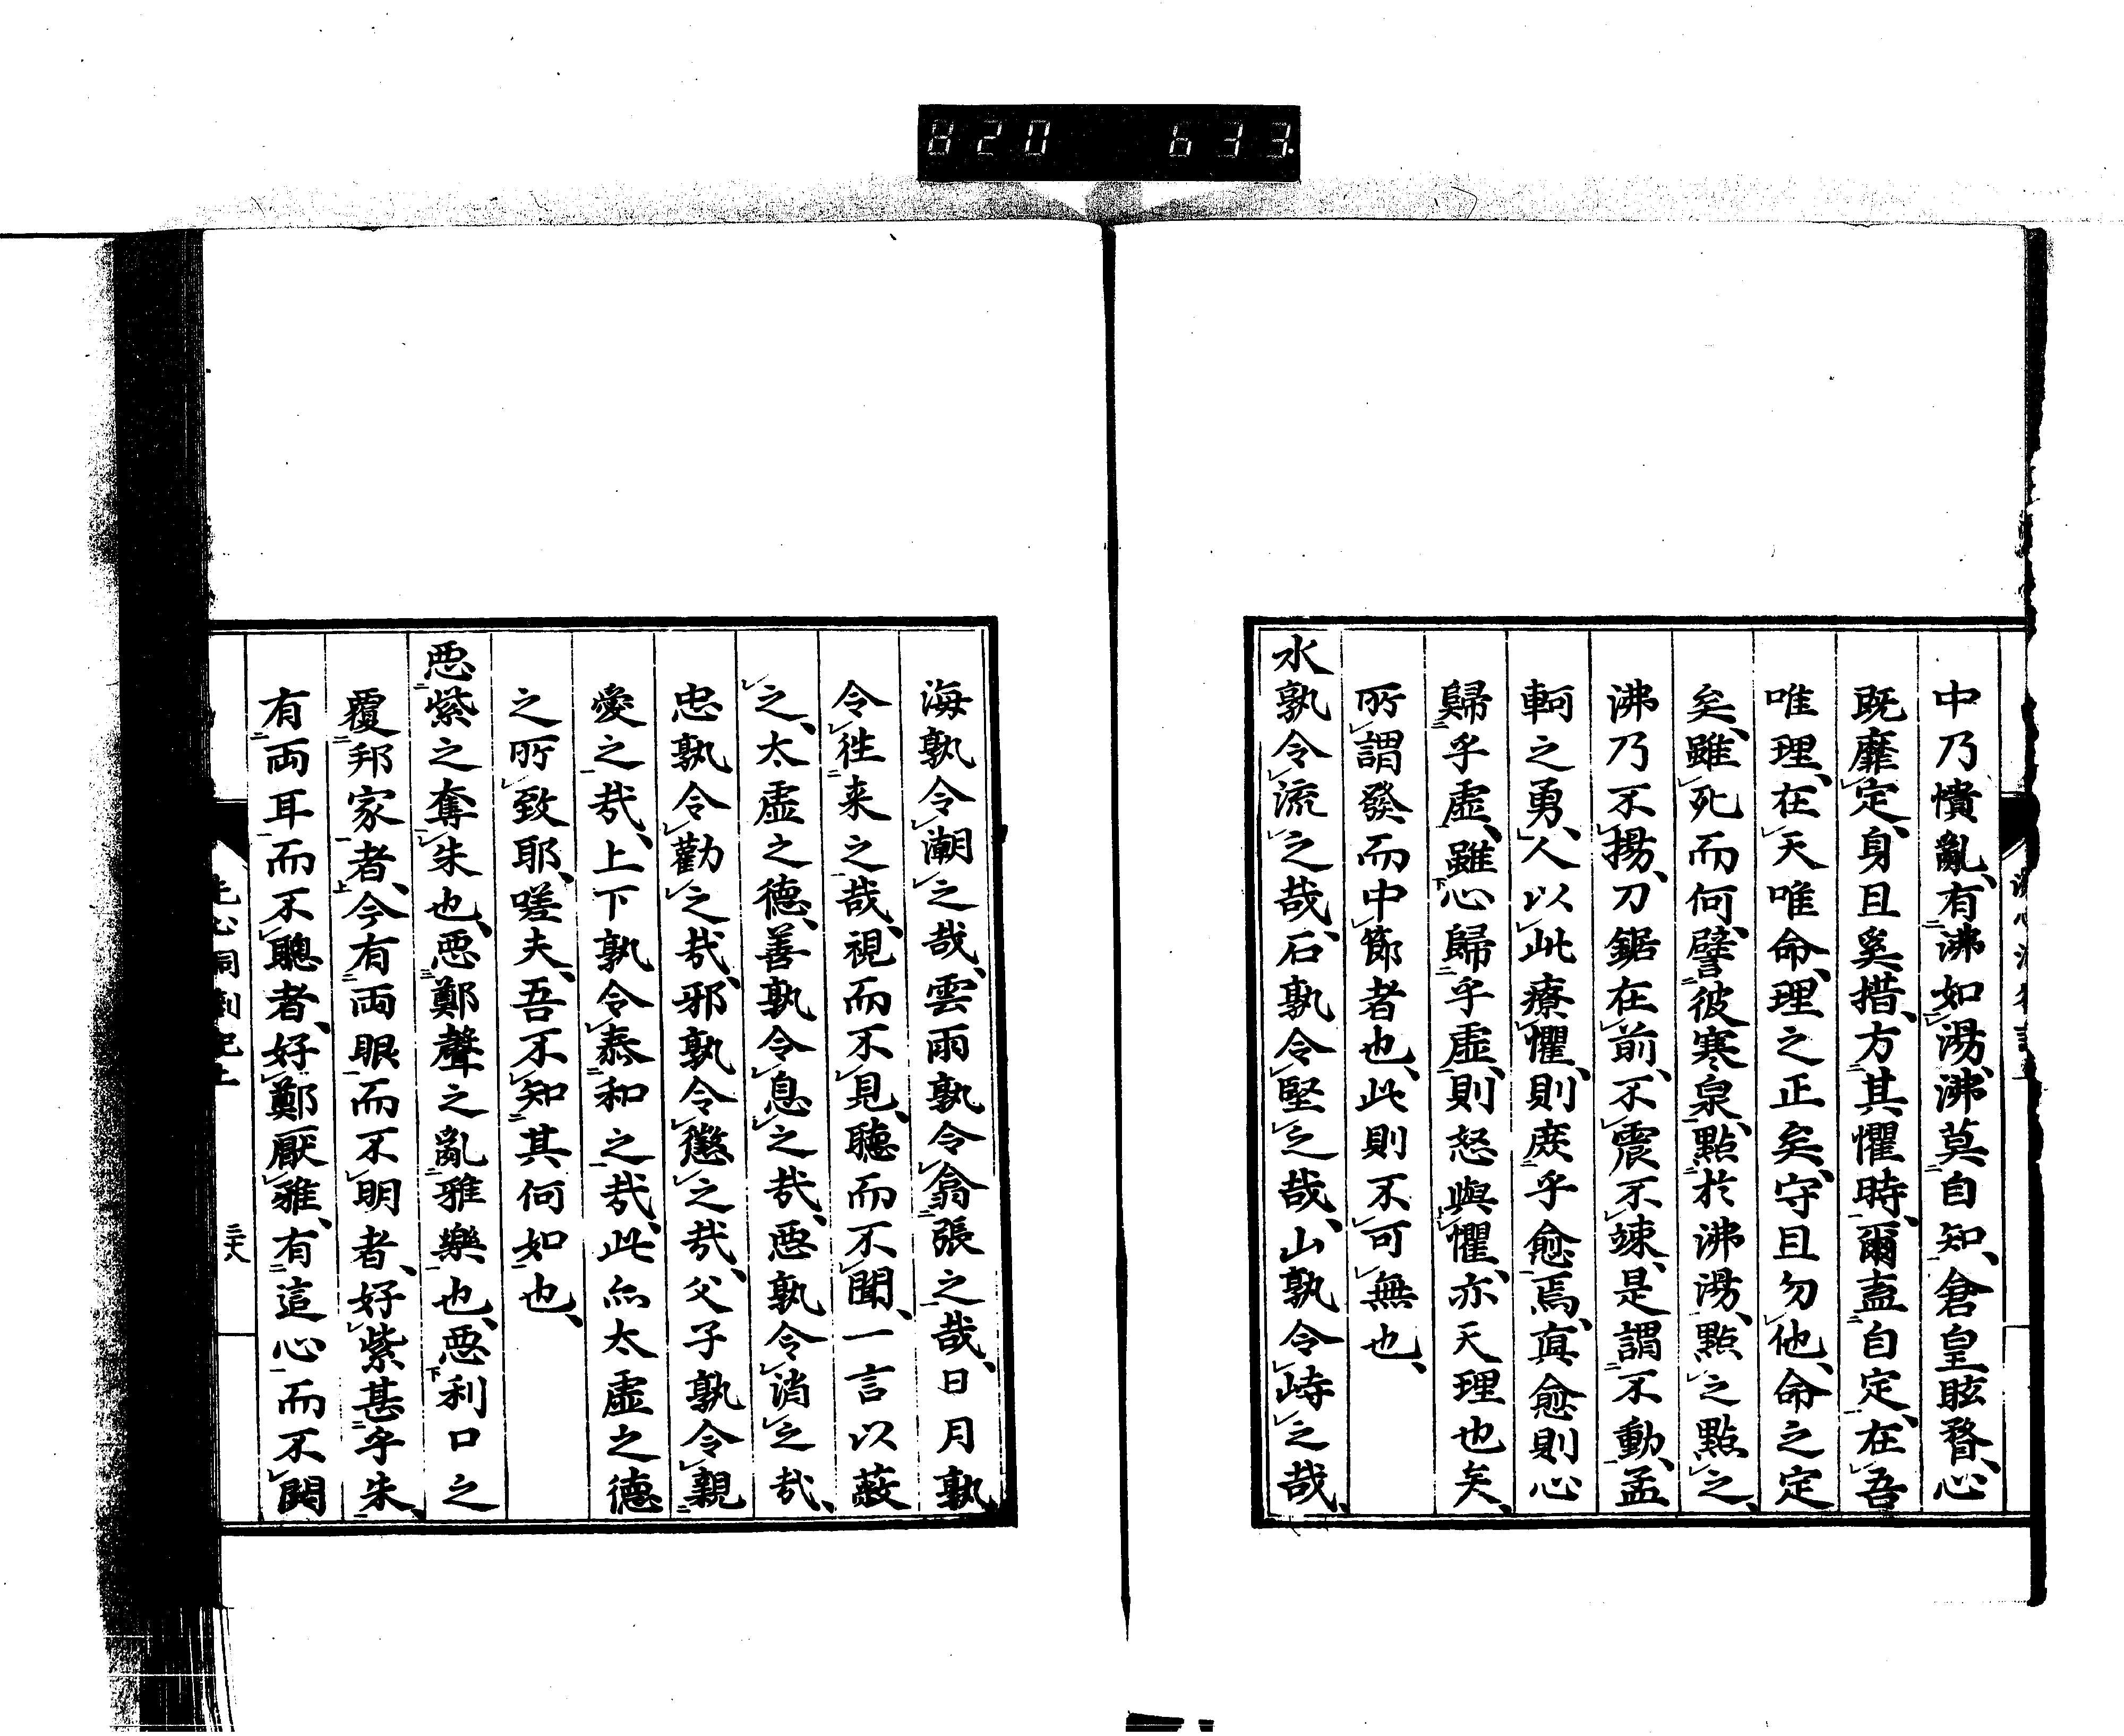 820 633
中乃憒亂、有沸如湯、沸莫自知、倉皇眩瞀、心
既靡定、身且奚措、方其懼時、爾盍自定、在吾
唯理、在天唯命、理之正矣、守且勿他、命之定
矣、雖死而何、譬彼寒泉、點於沸湯、點之點之、
沸乃不揚、刀鋸在前、不震不竦、是謂不動、孟
軻之勇、人以此療懼、則庶乎愈焉、真愈則心
歸乎虛、雖心歸乎虛、則怒與懼、亦天理也矣、
所謂發而中節者也、此則不可無也、
水孰令流之哉、石孰令堅之哉、山孰令峙之哉、
海孰令潮之哉、雲雨孰令翕張之哉、日月孰
令徃来之哉、視而不見、聽而不聞、一言以蔽
之、太虛之德、善孰令息之哉、惡孰令消之哉、
忠孰令勸之哉、邪孰令懲之哉、父子孰令親
愛之哉、上下孰令泰和之哉、此亦太虛之德
之所致耶、嗟夫、吾不知其何如也、
惡紫之奪朱也、惡鄭聲之亂雅樂也、惡利口之
覆邦家者、今有両眼而不明者、好紫甚乎朱、
有両耳而不聰者、好鄭厭雅、有這心而不閎
洗心洞劄記上
三十六